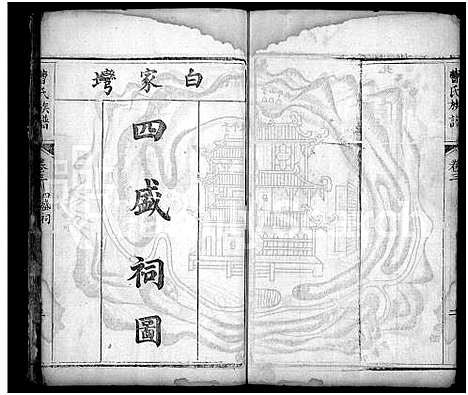 曹氏族譜
卷三
白家灣
四盛祠圖
曹氏族譜
卷三 四盛祠